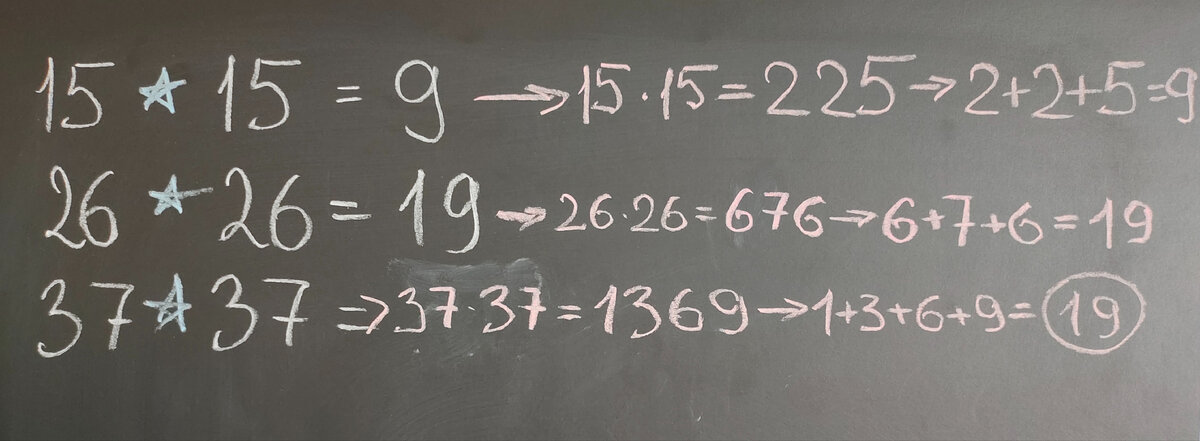 15 ☆ 15 = 9 → 15 · 15 = 225 → 2+2+5=9
26 ☆ 26 = 19 → 26 · 26 = 676 → 6+7+6=19
37 ☆ 37 ⇒ 37 · 37 = 1369 → 1+3+6+9= 19